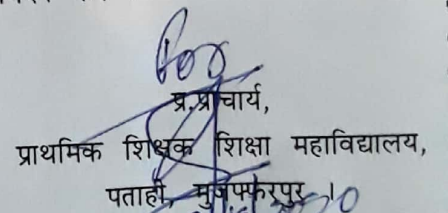 For
प्र.प्राचार्य,
प्राथमिक शिक्षक शिक्षा महाविद्यालय,
पताही, मुजफ्फरपुर ।